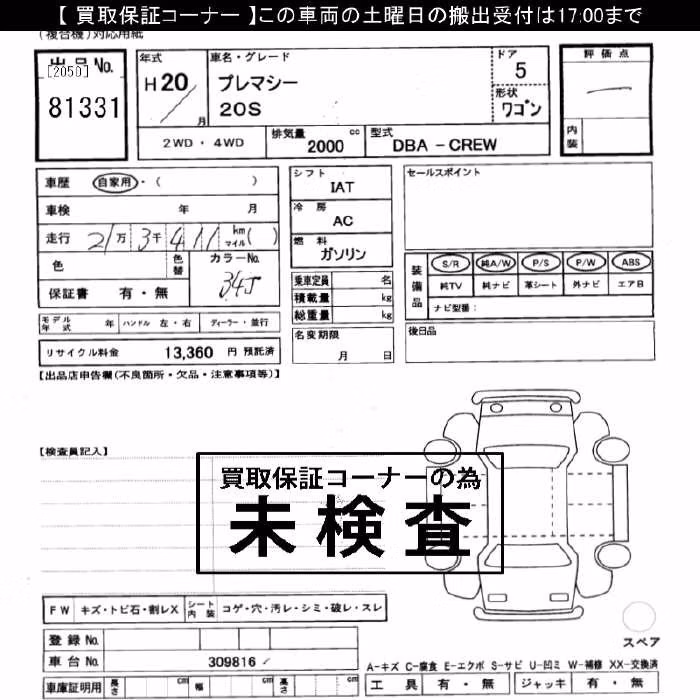 【 買取保証コーナー 】この車両の土曜日の搬出受付は17:00まで
(複合機)対応用紙
出品No.
[2050]
81331
年式
H20/月
車名・グレード
プレマシー
20S
ドア
5
形状
ワゴン
評価点
一
内装
2WD・4WD
排気量 2000 cc
型式 DBA-CREW
車歴 自家用・( )
車検 年 月
走行 21万 3千 4 11 km マイル( )
色
色替
カラーNo.
34J
保証書 有・無
シフト
IAT
冷房
AC
燃料
ガソリン
乗車定員 名
積載量 kg
総重量 kg
名変期限
月 日
セールスポイント
装備品
S/R 純A/W P/S P/W ABS
純TV 純ナビ 革シート 外ナビ エアB
ナビ型番:
後日品
モデル年式 年 ハンドル 左・右 ディーラー・並行
リサイクル料金 13,360 円 預託済
【出品店申告欄(不良箇所・欠品・注意事項等)】
【検査員記入】
買取保証コーナーの為
未検査
FW キズ・トビ石・割レX
シート内装 コゲ・穴・汚レ・シミ・破レ・スレ
登録No.
車台No. 309816
車庫証明用 長さ cm 幅 cm 高さ cm
スペア
A-キズ C-腐食 E-エクボ S-サビ U-凹ミ W-補修 XX-交換済
工具 有・無 ジャッキ 有・無